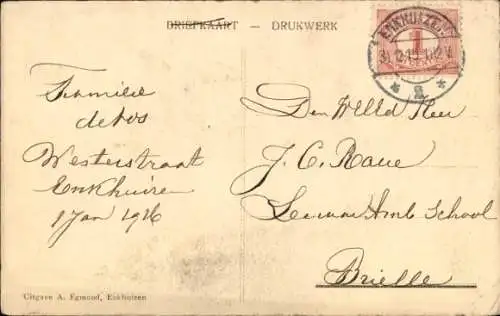 BRIEFKAART — DRUKWERK
ENKHUIZEN
1
Familie
de Vos
Westerstraat
Enkhuizen
1 Jan 1916
Den Weled Heer
J. C.
School
Brielle
Uitgave A. Egmond, Enkhuizen